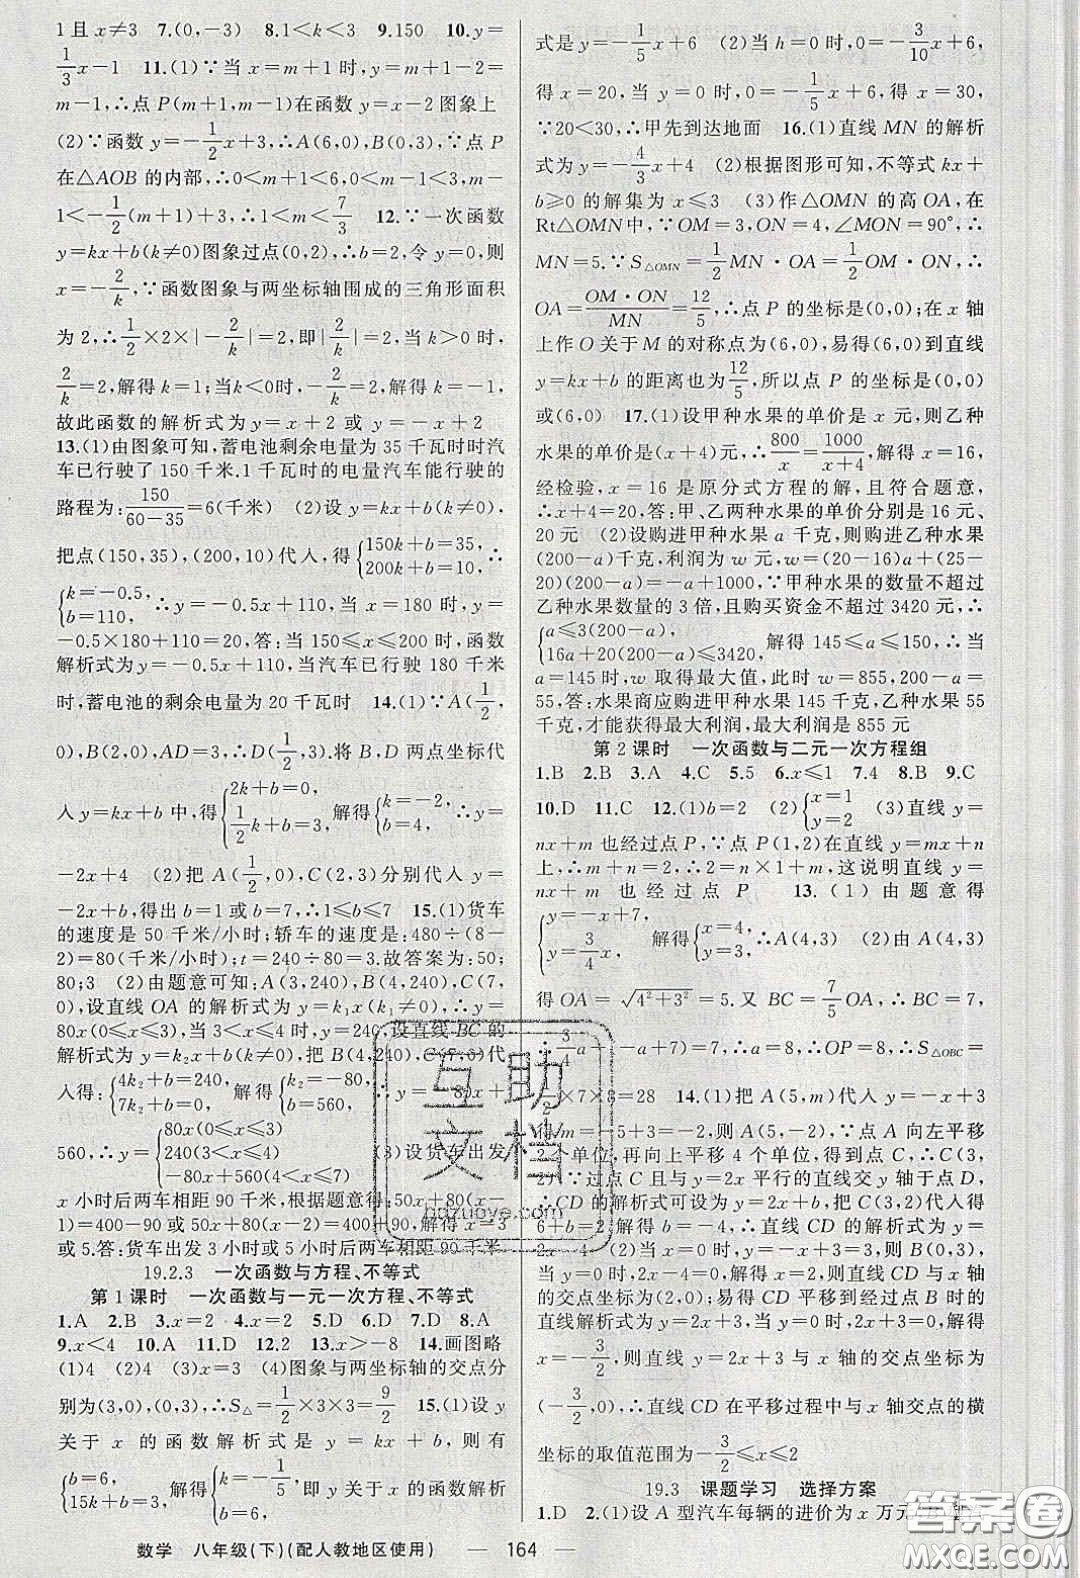 1且x≠3　7.(0,-3)　8.1<k<3　9.150　10.y=
1/3x-1　11.(1)∵当x=m+1时,y=m+1-2=
m-1,∴点P(m+1,m-1)在函数y=x-2图象上
(2)∵函数y=-1/2x+3,∴A(6,0),B(0,3),∵点P
在△AOB的内部,∴0<m+1<6,0<m-1<3,m-
1<-1/2(m+1)+3,∴1<m<7/3　12.∵一次函数
y=kx+b(k≠0)图象过点(0,2),∴b=2,令y=0,则
x=-2/k,∵函数图象与两坐标轴围成的三角形面积
为2,∴1/2×2×|-2/k|=2,即|2/k|=2,当k>0时,
2/k=2,解得k=1;当k<0时,-2/k=2,解得k=-1,
故此函数的解析式为y=x+2或y=-x+2
13.(1)由图象可知,蓄电池剩余电量为35千瓦时时汽
车已行驶了150千米.1千瓦时的电量汽车能行驶的
路程为:150/(60-35)=6(千米)　(2)设y=kx+b(k≠0),
把点(150,35),(200,10)代入,得{150k+b=35, 200k+b=10, ∴
{k=-0.5, b=110, ∴y=-0.5x+110,当x=180时,y=
-0.5×180+110=20,答:当150≤x≤200时,函数
解析式为y=-0.5x+110,当汽车已行驶180千米
时,蓄电池的剩余电量为20千瓦时　14.(1)∵A(1/2,
0),B(2,0),AD=3,∴D(1/2,3).将B,D两点坐标代
入y=kx+b中,得{2k+b=0, 1/2k+b=3, 解得{k=-2, b=4, ∴y=
-2x+4　(2)把A(1/2,0),C(2,3)分别代入y=
-2x+b,得出b=1或b=7,∴1≤b≤7　15.(1)货车
的速度是50千米/小时;轿车的速度是:480÷(8-
2)=80(千米/小时);t=240÷80=3.故答案为:50;
80;3　(2)由题意可知:A(3,240),B(4,240),C(7,
0),设直线OA的解析式为y=k₁x(k₁≠0),∴y=
80x(0≤x≤3),当3≤x≤4时,y=240,设直线BC的
解析式为y=k₂x+b(k≠0),把B(4,240),C(7,0)代
入得:{4k₂+b=240, 7k₂+b=0, 解得{k₂=-80, b=560, ∴y=-80x+
560,∴y={80x(0≤x≤3) 240(3≤x≤4) -80x+560(4≤x≤7)　(3)设货车出发
x小时后两车相距90千米,根据题意得:50x+80(x-
1)=400-90或50x+80(x-2)=400+90,解得x=3
或5.答:货车出发3小时或5小时后两车相距90千米
19.2.3　一次函数与方程、不等式
第1课时　一次函数与一元一次方程、不等式
1.A　2.B　3.x=2　4.x=2　5.D　6.D　7.D　8.A
9.x<4　10.A　11.D　12.2　13.x>-8　14.画图略
(1)4　(2)4　(3)x=3　(4)图象与两坐标轴的交点分
别为(3,0),(0,3),∴S△=1/2×3×3=9/2　15.(1)设y
关于x的函数解析式是y=kx+b,则有
{b=6, 15k+b=3, 解得{k=-1/5, b=6, 即y关于x的函数解析
式是y=-1/5x+6　(2)当h=0时,0=-3/10x+6,
得x=20,当y=0时,0=-1/5x+6,得x=30,
∵20<30,∴甲先到达地面　16.(1)直线MN的解析
式为y=-4/3x+4　(2)根据图形可知,不等式kx+
b≥0的解集为x≤3　(3)作△OMN的高OA,在
Rt△OMN中,∵OM=3,ON=4,∠MON=90°,∴
MN=5.∵S△OMN=1/2MN·OA=1/2OM·ON,∴
OA=OM·ON/MN=12/5,∴点P的坐标是(0,0);在x轴
上作O关于M的对称点为(6,0),易得(6,0)到直线
y=kx+b的距离也为12/5,所以点P的坐标是(0,0)
或(6,0)　17.(1)设甲种水果的单价是x元,则乙种
水果的单价是(x+4)元,∴800/x=1000/(x+4),解得x=16,
经检验,x=16是原分式方程的解,且符合题意,
∴x+4=20,答:甲、乙两种水果的单价分别是16元、
20元　(2)设购进甲种水果a千克,则购进乙种水果
(200-a)千克,利润为w元,w=(20-16)a+(25-
20)(200-a)=-a+1000,∵甲种水果的数量不超过
乙种水果数量的3倍,且购买资金不超过3420元,∴
{a≤3(200-a), 16a+20(200-a)≤3420, 解得145≤a≤150,∴当
a=145时,w取得最大值,此时w=855,200-a=
55,答:水果商应购进甲种水果145千克,乙种水果55
千克,才能获得最大利润,最大利润是855元
第2课时　一次函数与二元一次方程组
1.B　2.B　3.A　4.C　5.5　6.x≤1　7.4　8.B　9.C
10.D　11.C　12.(1)b=2　(2){x=1 y=2　(3)直线y=
nx+m也经过点P,∵点P(1,2)在直线y=mx+n
上,∴m+n=2,∴2=n×1+m,这说明直线y=
nx+m也经过点P　13.(1)由题意得
{y=-x+7, y=3/4x, 解得{x=4, y=3, ∴A(4,3)　(2)由A(4,3)
得OA=√(4²+3²)=5.又BC=7/5OA,∴BC=7,
∴3/4a-(-a+7)=7;∴a=8,∴OP=8;∴S△OBC=
1/2×7×8=28　14.(1)把A(5,m)代入y=-x+3
得m=-5+3=-2,则A(5,-2),∵点A向左平移
2个单位,再向上平移4个单位,得到点C,∴C(3,
2),∵过点C且与y=2x平行的直线交y轴于点D,
∴CD的解析式可设为y=2x+b,把C(3,2)代入得
6+2=b,解得b=-4,∴直线CD的解析式为y=
2x-4　(2)当x=0时,y=-x+3=3,则B(0,3),当
y=0时,2x-4=0,解得x=2,则直线CD与x轴
的交点坐标为(2,0);易得CD平移到经过点B时的
直线解析式为y=2x+3,当y=0时,2x+3=0,解得
x=-3/2,则直线y=2x+3与x轴的交点坐标为
(-3/2,0),∴直线CD在平移过程中与x轴交点的横
坐标的取值范围为-3/2≤x≤2
19.3　课题学习　选择方案
1.D　2.(1)设A型汽车每辆的进价为x万元,B型
数学　八年级(下)(配人教地区使用)　— 164 —
互助
文档
hdzuoye.com
答案圈
MXQE.COM